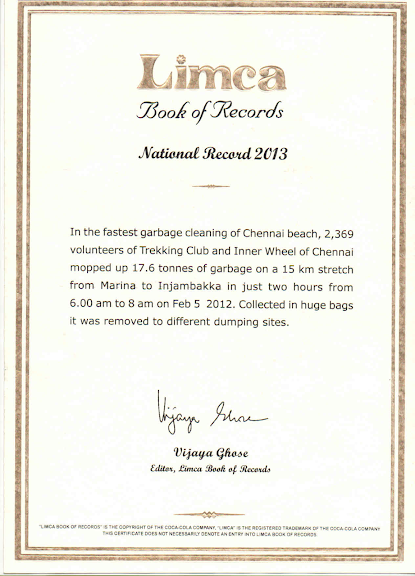 Limca
Book of Records
National Record 2013
In the fastest garbage cleaning of Chennai beach, 2,369
volunteers of Trekking Club and Inner Wheel of Chennai
mopped up 17.6 tonnes of garbage on a 15 km stretch
from Marina to Injambakka in just two hours from
6.00 am to 8 am on Feb 5 2012. Collected in huge bags
it was removed to different dumping sites.
Vijaya Ghose
Vijaya Ghose
Editor, Limca Book of Records
"LIMCA BOOK OF RECORDS" IS THE COPYRIGHT OF THE COCA-COLA COMPANY. "LIMCA" IS THE REGISTERED TRADEMARK OF THE COCA-COLA COMPANY
THIS CERTIFICATE DOES NOT NECESSARILY DENOTE AN ENTRY INTO LIMCA BOOK OF RECORDS